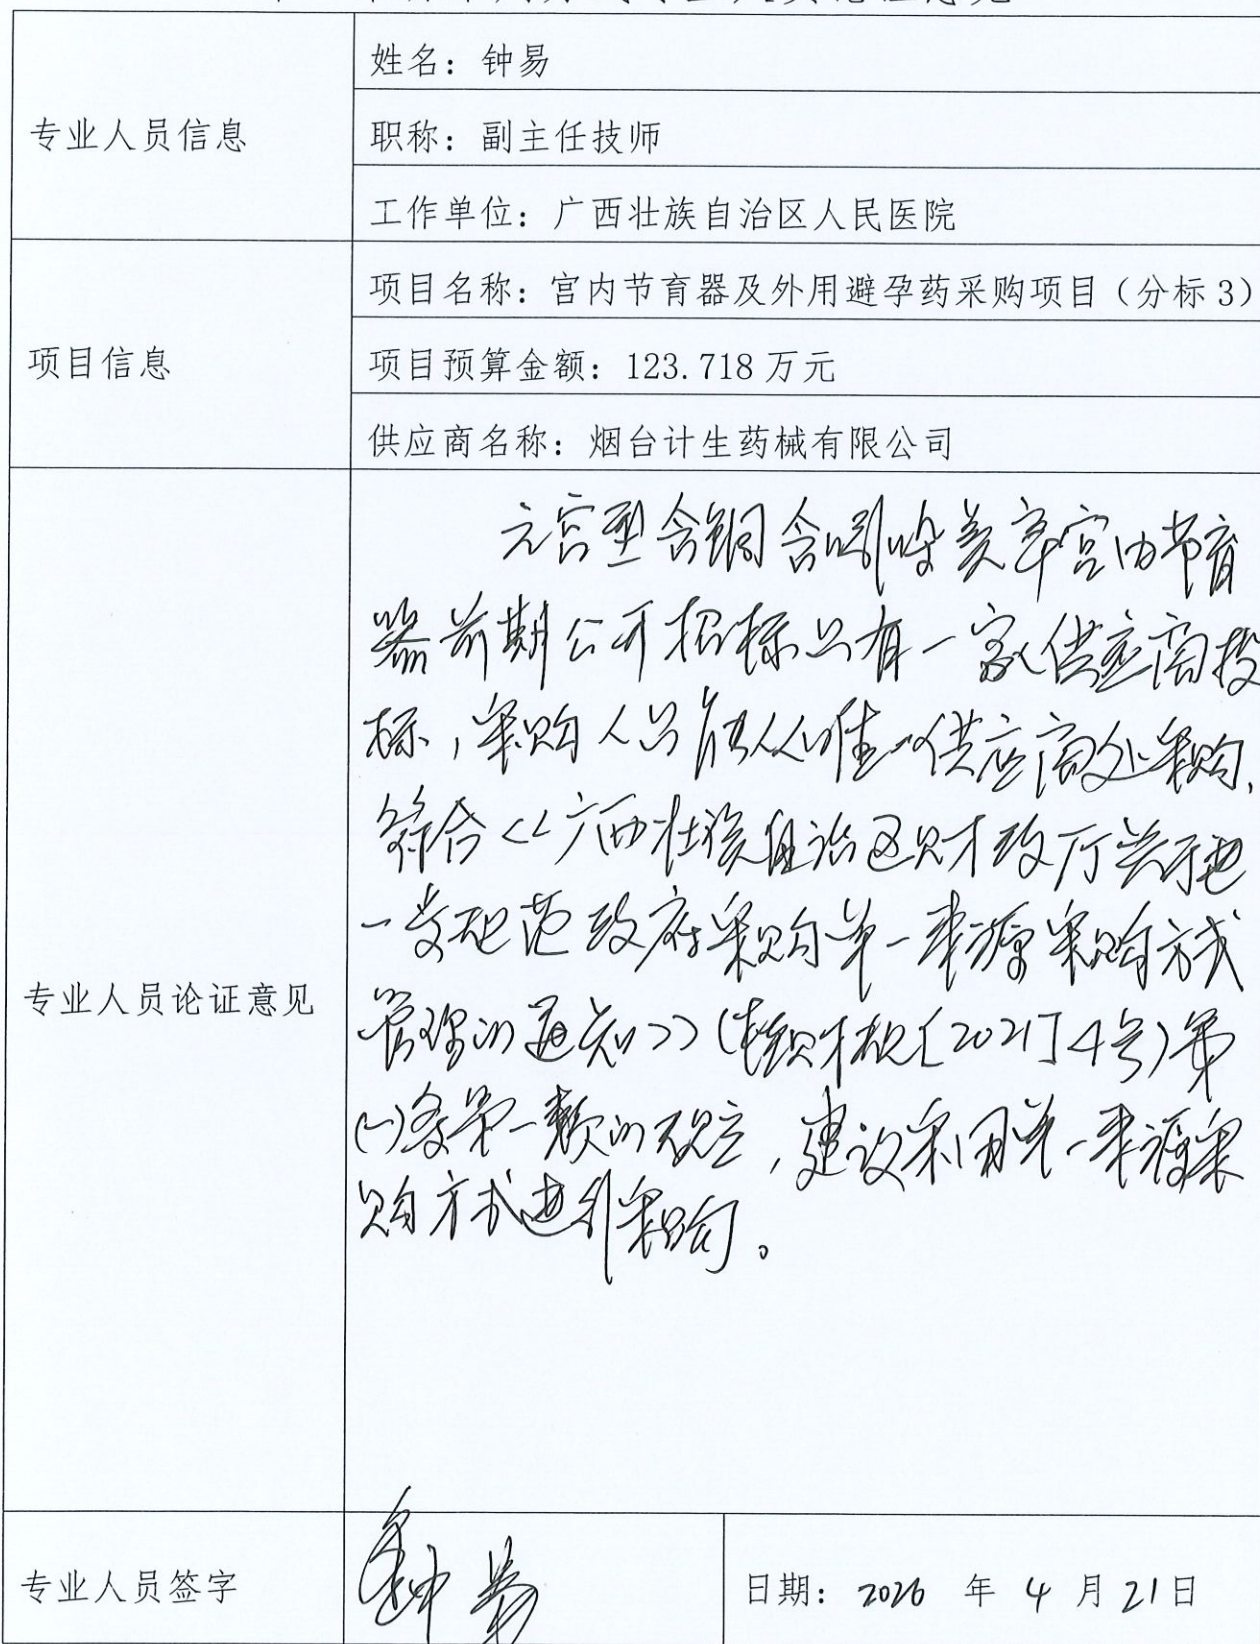 专业人员信息
姓名：钟易
职称：副主任技师
工作单位：广西壮族自治区人民医院
项目信息
项目名称：宫内节育器及外用避孕药采购项目（分标3）
项目预算金额：123.718万元
供应商名称：烟台计生药械有限公司
专业人员论证意见
元宫型含铜含吲哚美辛宫内节育
器前期公开招标只有一家供应商投
标，采购人只能从唯一供应商处采购，
符合<<广西壮族自治区财政厅关于进
一步规范政府采购单一来源采购方式
管理的通知>>(桂财规〔2021〕4号)第
(一)条第一款的规定，建议采用单一来源采
购方式进行采购。
专业人员签字
钟易
日期：2026 年 4 月 21日